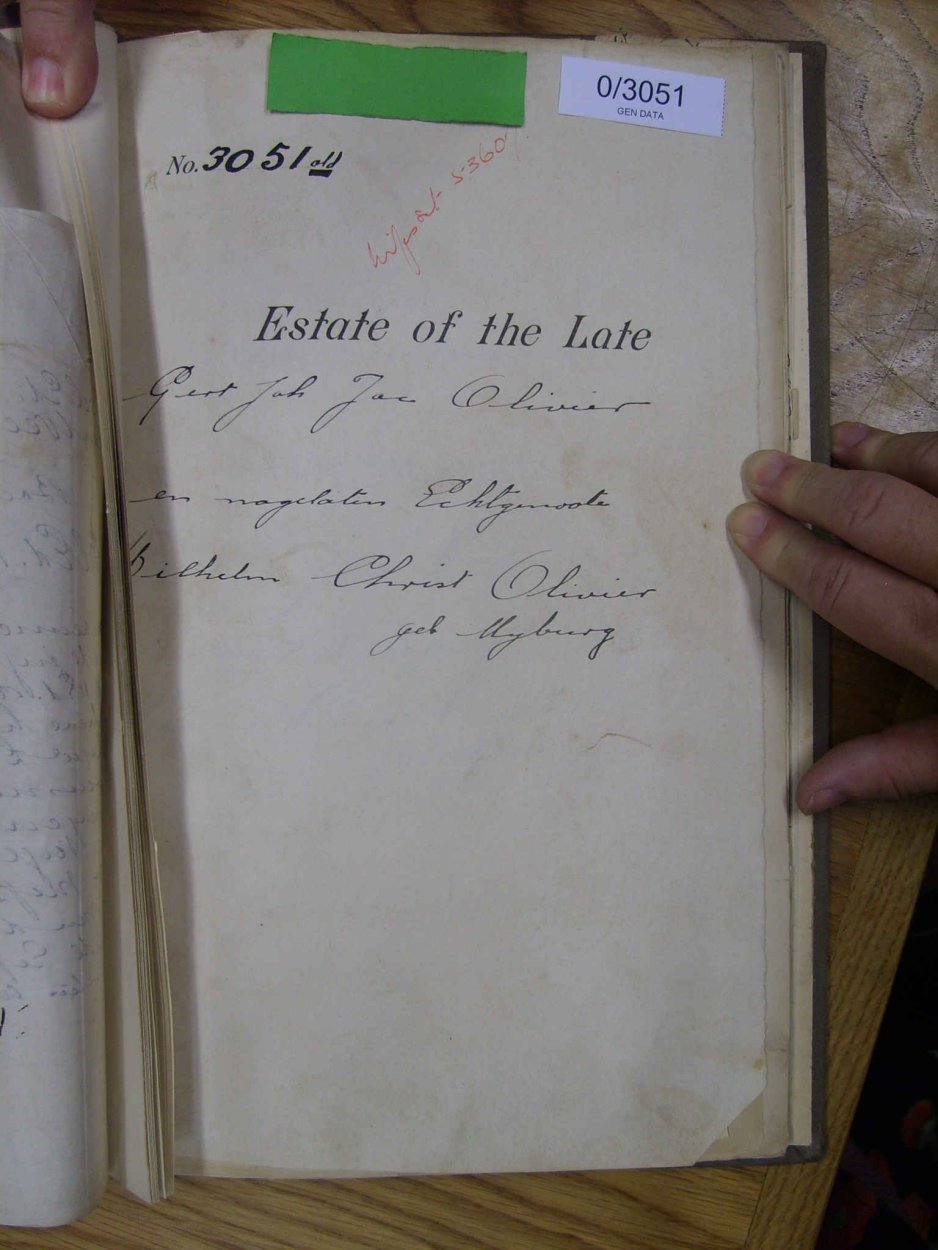 0/3051
GEN DATA
No. 3051 old
S.360
Estate of the Late
Gert Joh Jac Olivier
en nagelaten Echtgenoote
Wilhelm Christ Olivier
geb Myburg